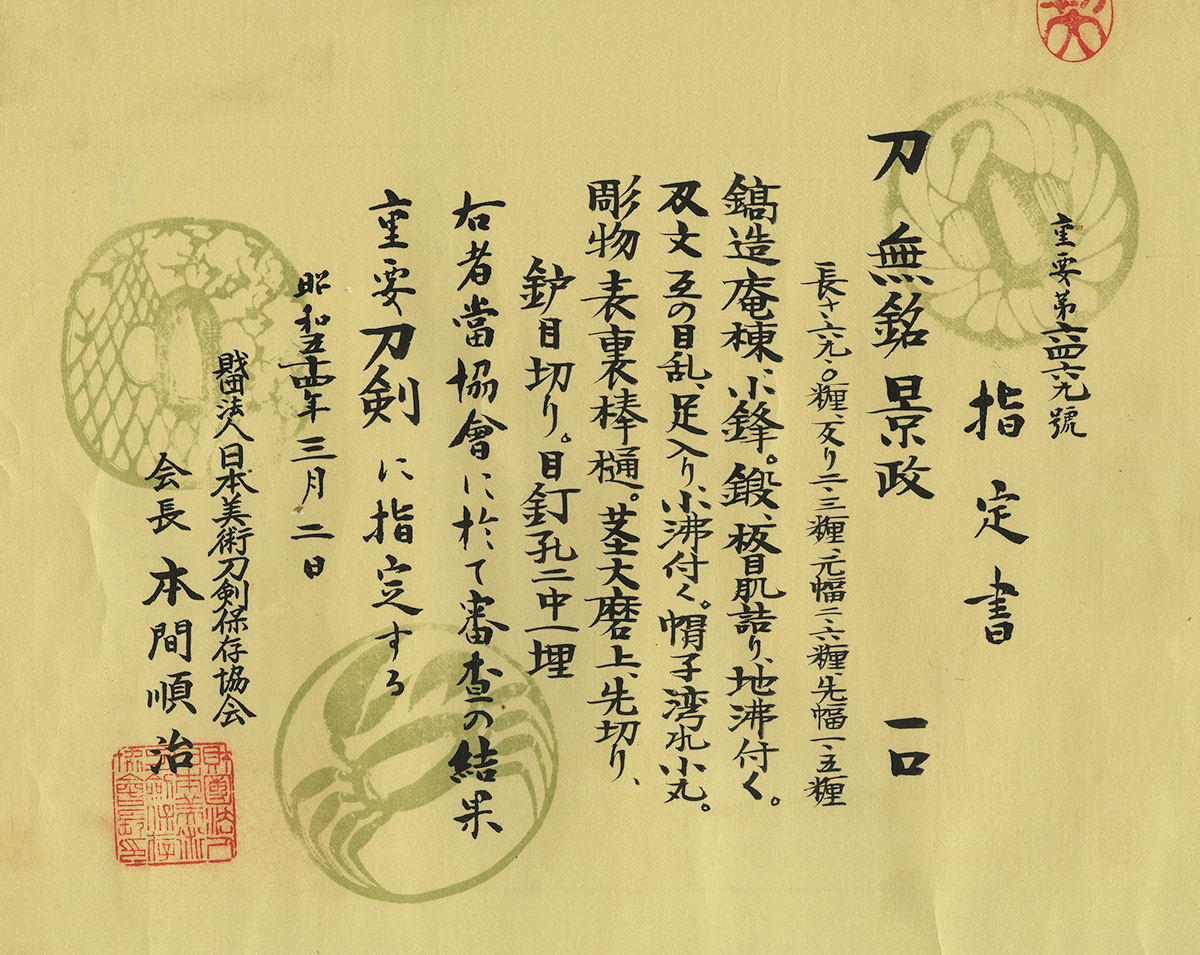 重要第六四六九號
指定書
刀 無銘 景政 一口
長サ六九・〇糎、反リ二・三糎、元幅二・六糎、先幅一・五糎
鎬造庵棟、小鋒。鍛、板目肌詰り、地沸付く。
刃文互の目乱、足入り、小沸付く。帽子湾れ小丸。
彫物表裏棒樋。茎大磨上、先切り、
鈩目切り。目釘孔二中一埋
右者當協會に於て審査の結果
重要刀剣に指定する
昭和五十四年三月二日
財団法人日本美術刀剣保存協会
会長 本間順治